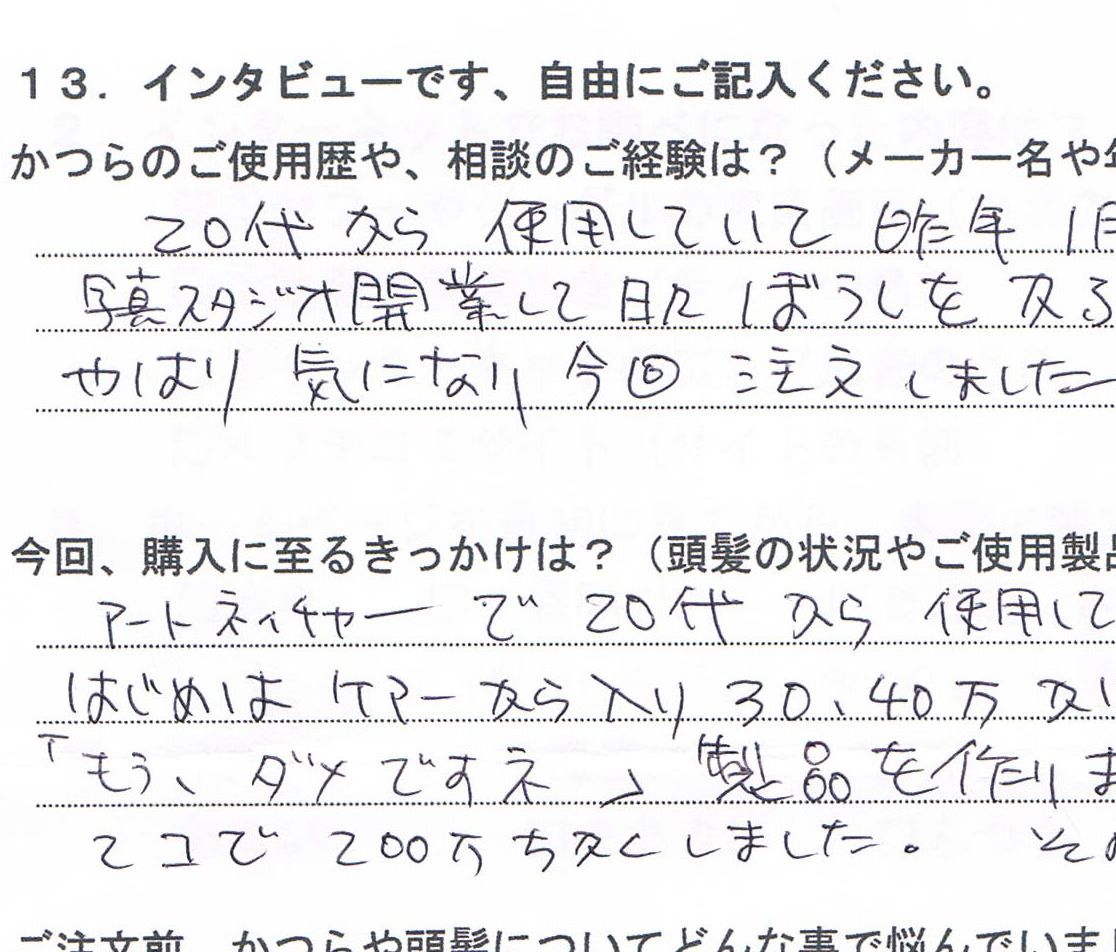 13．インタビューです、自由にご記入ください。
かつらのご使用歴や、相談のご経験は？（メーカー名や年
20代から 使用していて 昨年 1月
写真スタジオ開業して 日々 ぼうしを 欠る
やはり 気になり 今回 注文しました
今回、購入に至るきっかけは？（頭髪の状況やご使用製品
アートネイチャーで 20代から 使用して
はじめは ケアーから入り 30、40万
「もう、ダメですネ」製品を作りま
2コで 200万 ち欠くしました。 その
ご注文前、かつらや頭髪についてどんな事で悩んでいま